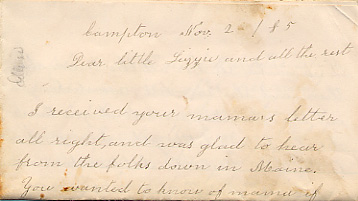 Campton Nov. 2 - / 85
Dear little Lizzie and all the rest
I received your mamars letter
all right, and was glad to hear
from the folks down in Maine.
You wanted to know of mama if